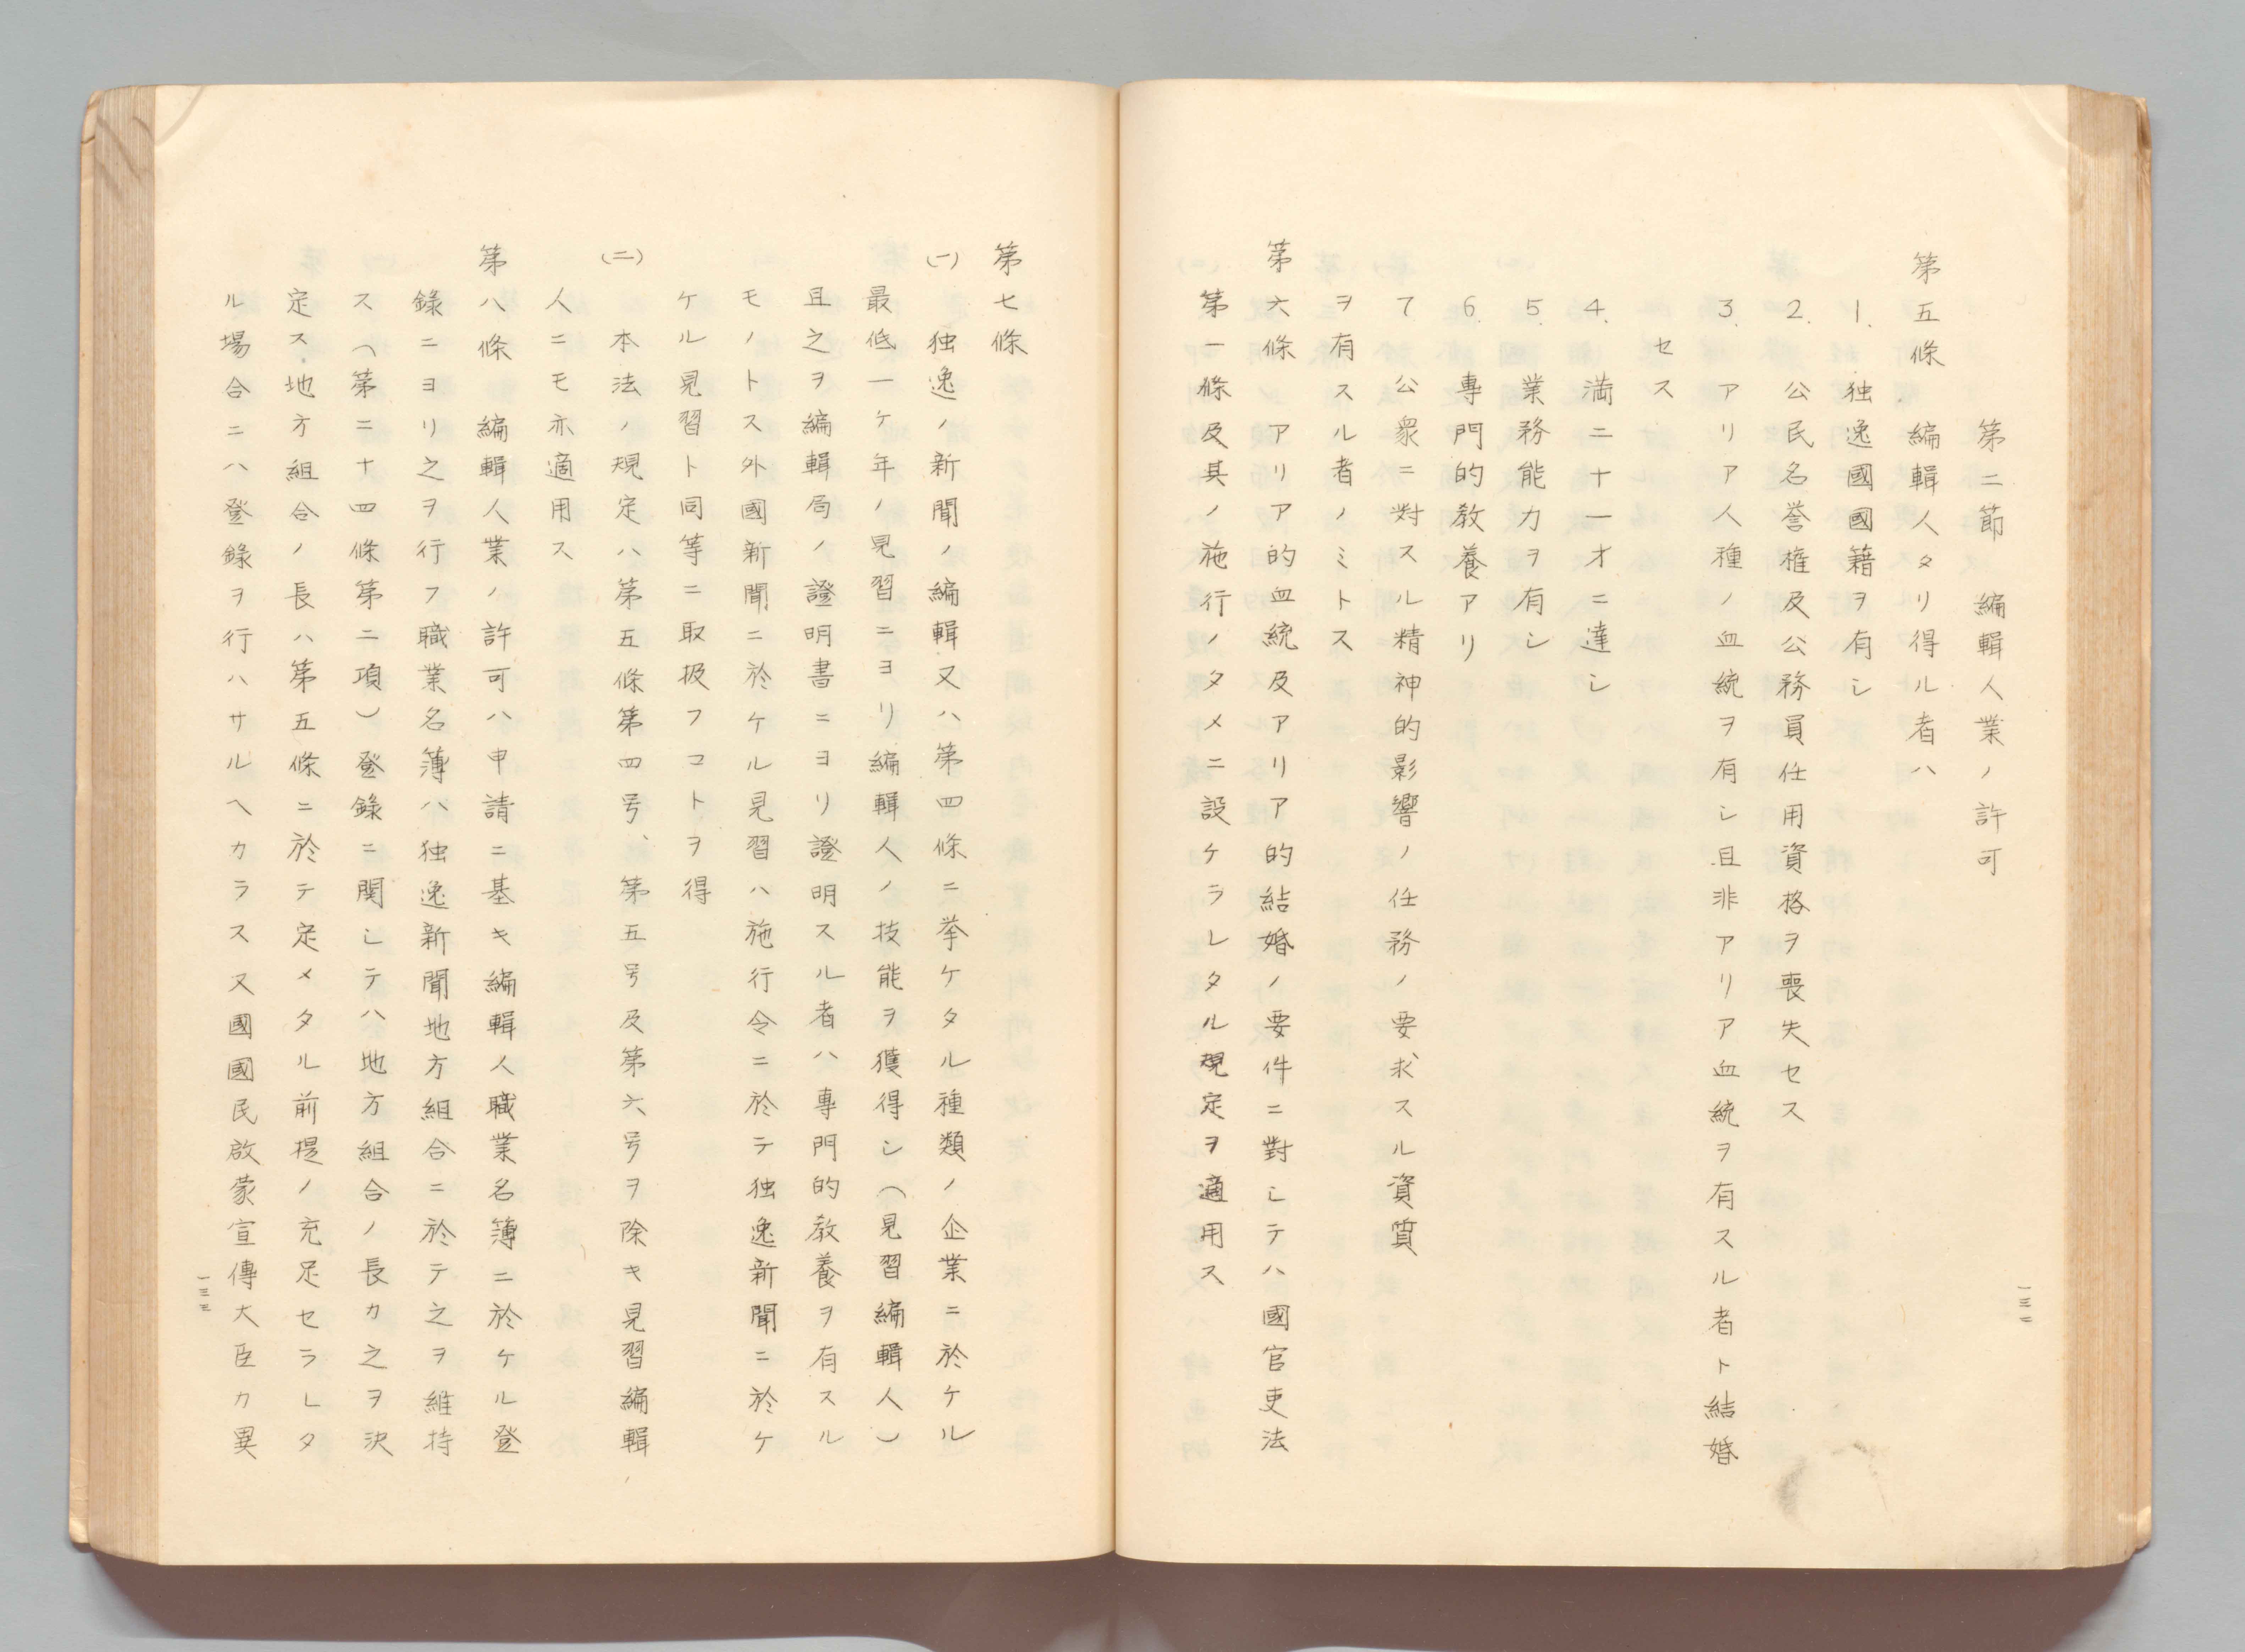 第二節　編輯人業ノ許可
第五條　編輯人タリ得ル者ハ
1.　独逸國國籍ヲ有シ
2.　公民名誉権及公務員任用資格ヲ喪失セス
3.　アリア人種ノ血統ヲ有シ且非アリア血統ヲ有スル者ト結婚
セス
4.　満二十一才ニ達シ
5.　業務能力ヲ有シ
6.　専門的教養アリ
7　公衆ニ對スル精神的影響ノ任務ノ要求スル資質
ヲ有スル者ノミトス
第六條　アリア的血統及アリア的結婚ノ要件ニ對シテハ國官吏法
第一條及其ノ施行ノタメニ設ケラレタル規定ヲ適用ス
一三二
第七條
(一)　独逸ノ新聞ノ編輯又ハ第四條ニ挙ケタル種類ノ企業ニ於ケル
最低一ケ年ノ見習ニヨリ編輯人ノ技能ヲ獲得シ（見習編輯人）
且之ヲ編輯局ノ證明書ニヨリ證明スル者ハ専門的教養ヲ有スル
モノトス外國新聞ニ於ケル見習ハ施行令ニ於テ独逸新聞ニ於ケ
ケル見習ト同等ニ取扱フコトヲ得
(二)　本法ノ規定ハ第五條第四号、第五号及第六号ヲ除キ見習編輯
人ニモ亦適用ス
第八條　編輯人業ノ許可ハ申請ニ基キ編輯人職業名簿ニ於ケル登
錄ニヨリ之ヲ行フ職業名簿ハ独逸新聞地方組合ニ於テ之ヲ維持
ス（第二十四條第二項）登錄ニ関シテハ地方組合ノ長カ之ヲ決
定ス地方組合ノ長ハ第五條ニ於テ定メタル前提ノ充足セラレタ
ル場合ニハ登錄ヲ行ハサルヘカラス又國國民啟蒙宣傳大臣カ異
一三三